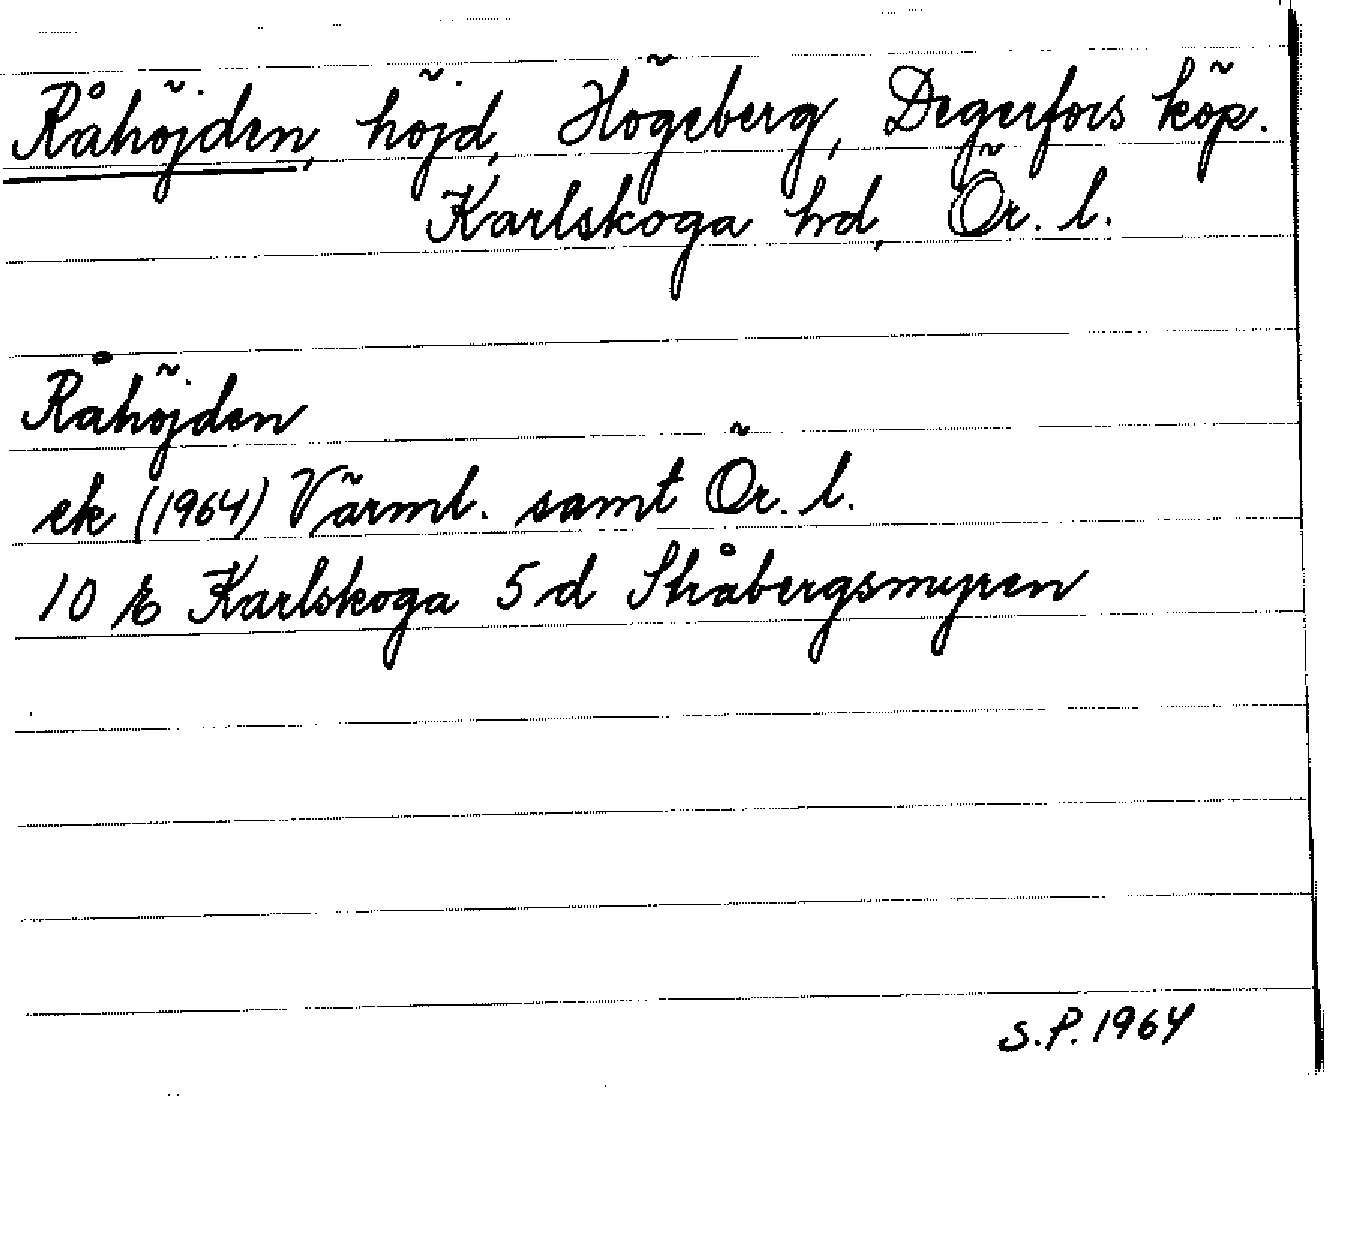 Råhöjden, höjd, Högeberg, Degerfors köp.
Karlskoga hd, Ör. l.
Råhöjden
ek (1964) Värml. samt Ör. l.
10 E Karlskoga 5 d Stråbergsmyren
S.P. 1964